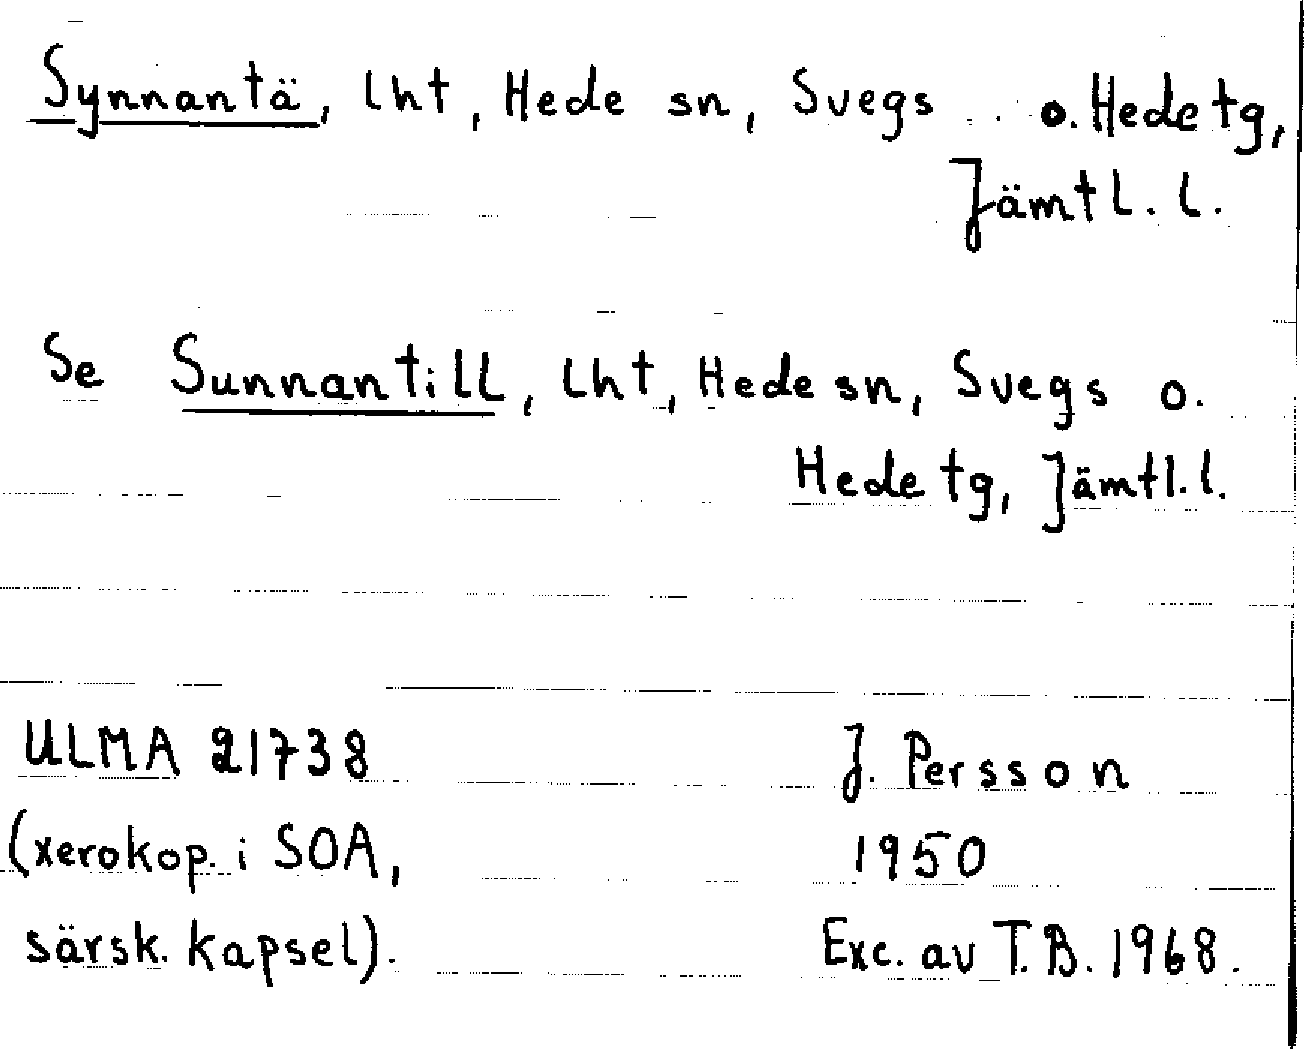 Synnantä, lht, Hede sn, Svegs o. Hede tg,
Jämtl. l.
Se Sunnantill, lht, Hede sn, Svegs o.
Hede tg, Jämtl. l.
ULMA 21738
J. Persson
(xerokop. i SOA,
1950
särsk. kapsel).
Exc. av T.B. 1968.